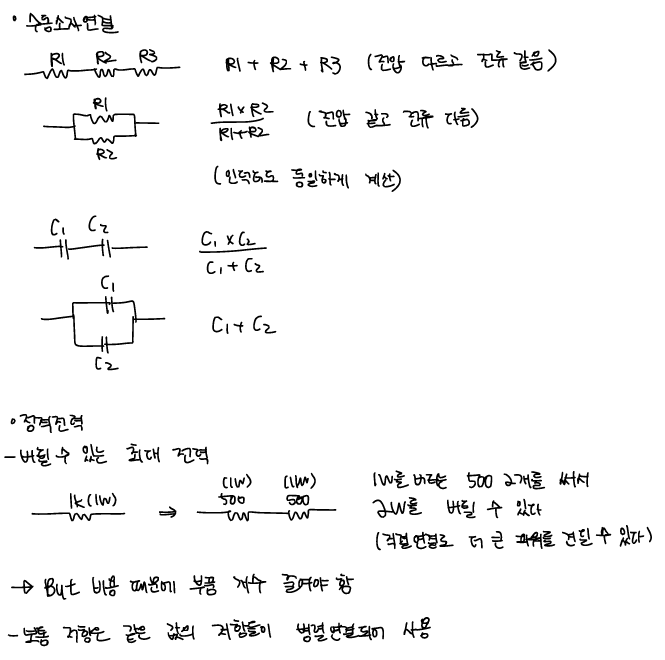 • 수동소자연결
R1 R2 R3 R1 + R2 + R3 (전압 다르고 전류 같음)
R1
R2
R1×R2
R1+R2
(전압 같고 전류 다름)
(인덕터도 동일하게 계산)
C1 C2
C1 × C2
C1 + C2
C1
C2
C1+ C2
• 정격전력
- 버틸 수 있는 최대 전력
1K(1W) ⇒ (1W) (1W)
500 500
1W를 버티는 500 2개를 써서
2W를 버틸 수 있다
(직렬연결로 더 큰 파워를 견딜 수 있다)
→ But 비용 때문에 부품 개수 줄여야 함
- 보통 저항은 같은 값의 저항들이 병렬연결되어 사용